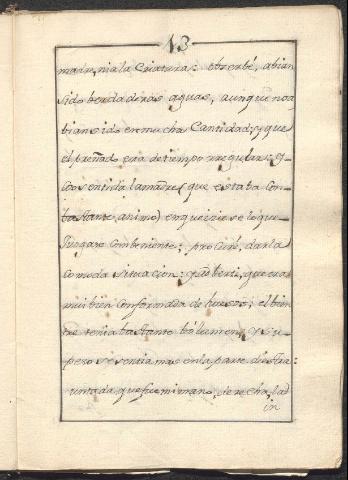 13
madre, ni a la Criatura: obserbé, abian
sido berdaderas aguas, aunque no a
bian sido en mucha Cantidad; y que
el preñado era de tiempo rregular: y
consentida la madre (que estaba con
bastante animo) en que hiziese lo que
Juzgara combeniente; procuré, darla
acomoda situacion: y adberti, que era
mui bien conformada de huesos; el bien
tre tenia bastante bólumen, y su
peso se sentia mas en la parte diestra:
untada que fue mi mano, derecha, la
in